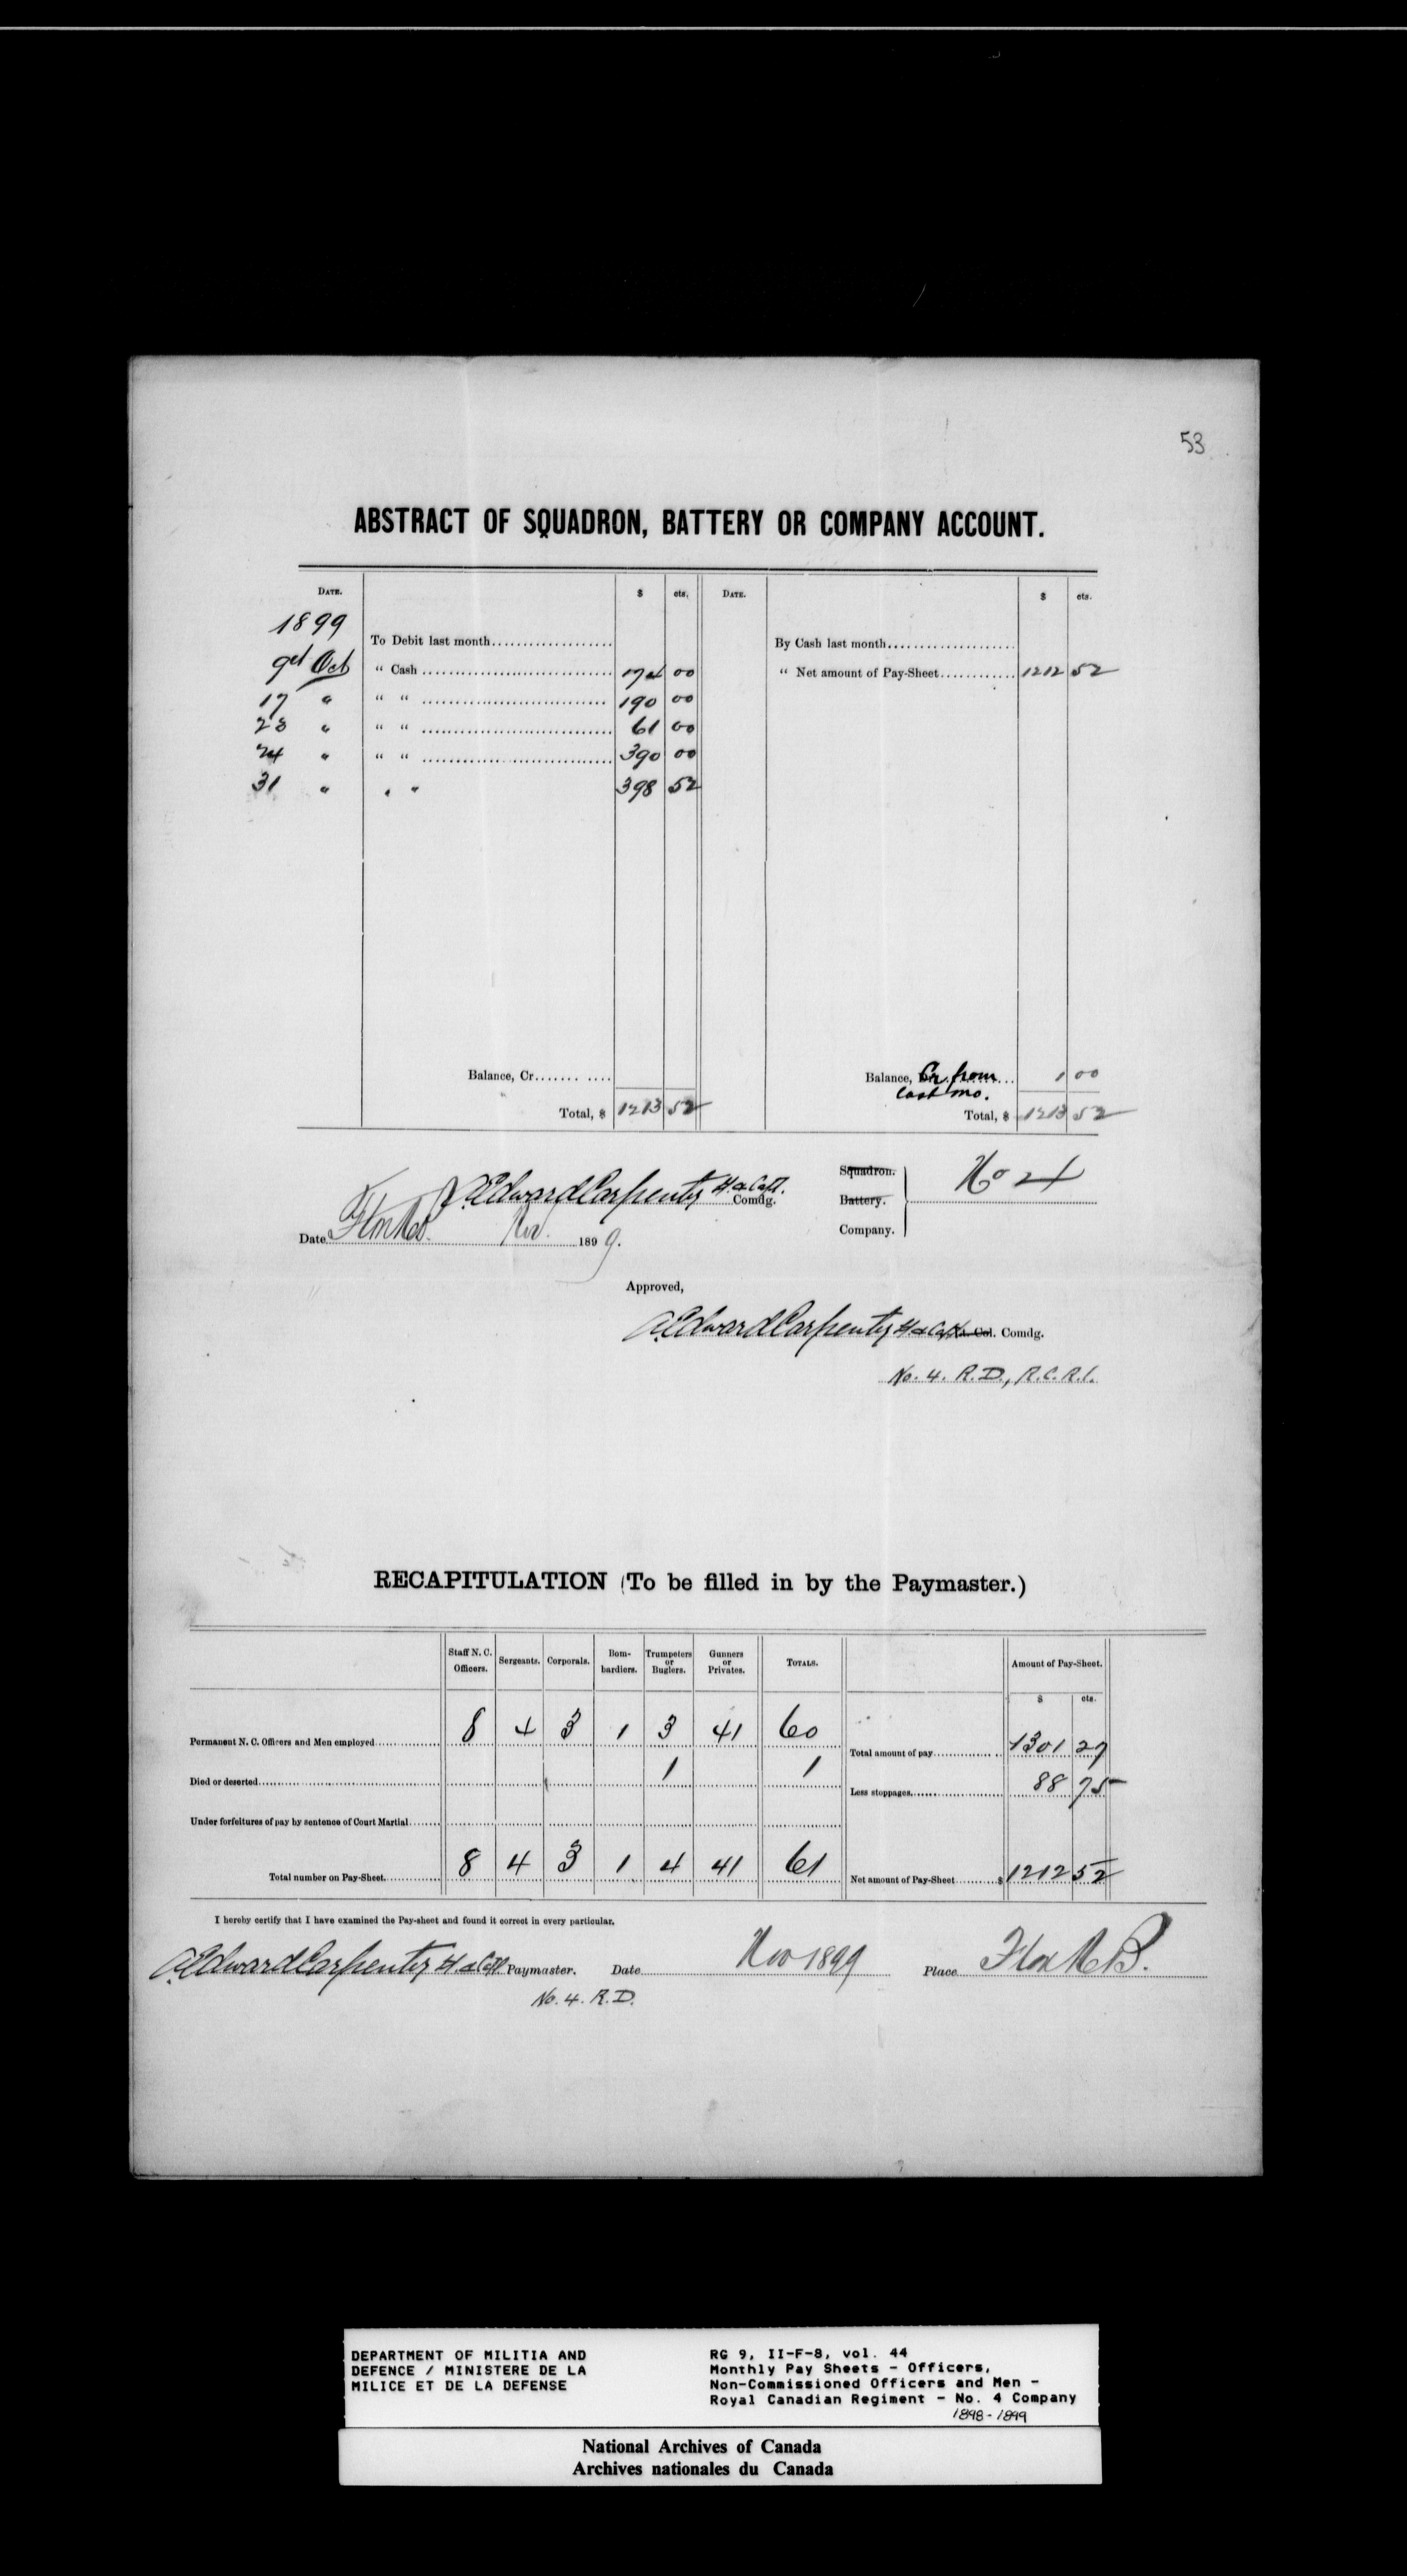 53
ABSTRACT OF SQUADRON, BATTERY OR COMPANY ACCOUNT.
DATE. $ cts. DATE. $ cts.
1899
To Debit last month By Cash last month
9th Oct “ Cash 174 00 “ Net amount of Pay-Sheet 1212 52
17 " “ “ 190 00
23 " “ “ 61 00
24 " “ “ 390 00
31 " " " 398 52
Balance, Cr. Balance, Cr from last mo. 1 00
Total, $ 1213 52 Total, $ 1213 52
A. Edward Carpenter H a Capt. Comdg.
Squadron.
Battery. No 4
Company.
Date Nov. 1899.
Approved,
A. Edward Carpenter H a Capt. Col. Comdg.
No. 4. R.D., R.C.R.I.
RECAPITULATION (To be filled in by the Paymaster.)
Staff N. C. Officers. Sergeants. Corporals. Bombardiers. Trumpeters or Buglers. Gunners or Privates. TOTALS. Amount of Pay-Sheet.
$ cts.
Permanent N. C. Officers and Men employed 8 4 3 1 3 41 60 Total amount of pay 1301 27
Died or deserted 1 1 Less stoppages 88 75
Under forfeitures of pay by sentence of Court Martial
Total number on Pay-Sheet 8 4 3 1 4 41 61 Net amount of Pay-Sheet $ 1212 52
I hereby certify that I have examined the Pay-sheet and found it correct in every particular.
A. Edward Carpenter H a Capt Paymaster. Date Nov 1899 Place Fton N.B.
No. 4. R.D.
DEPARTMENT OF MILITIA AND
DEFENCE / MINISTERE DE LA
MILICE ET DE LA DEFENSE
RG 9, II-F-8, vol. 44
Monthly Pay Sheets - Officers,
Non-Commissioned Officers and Men -
Royal Canadian Regiment - No. 4 Company
1898-1899
National Archives of Canada
Archives nationales du Canada